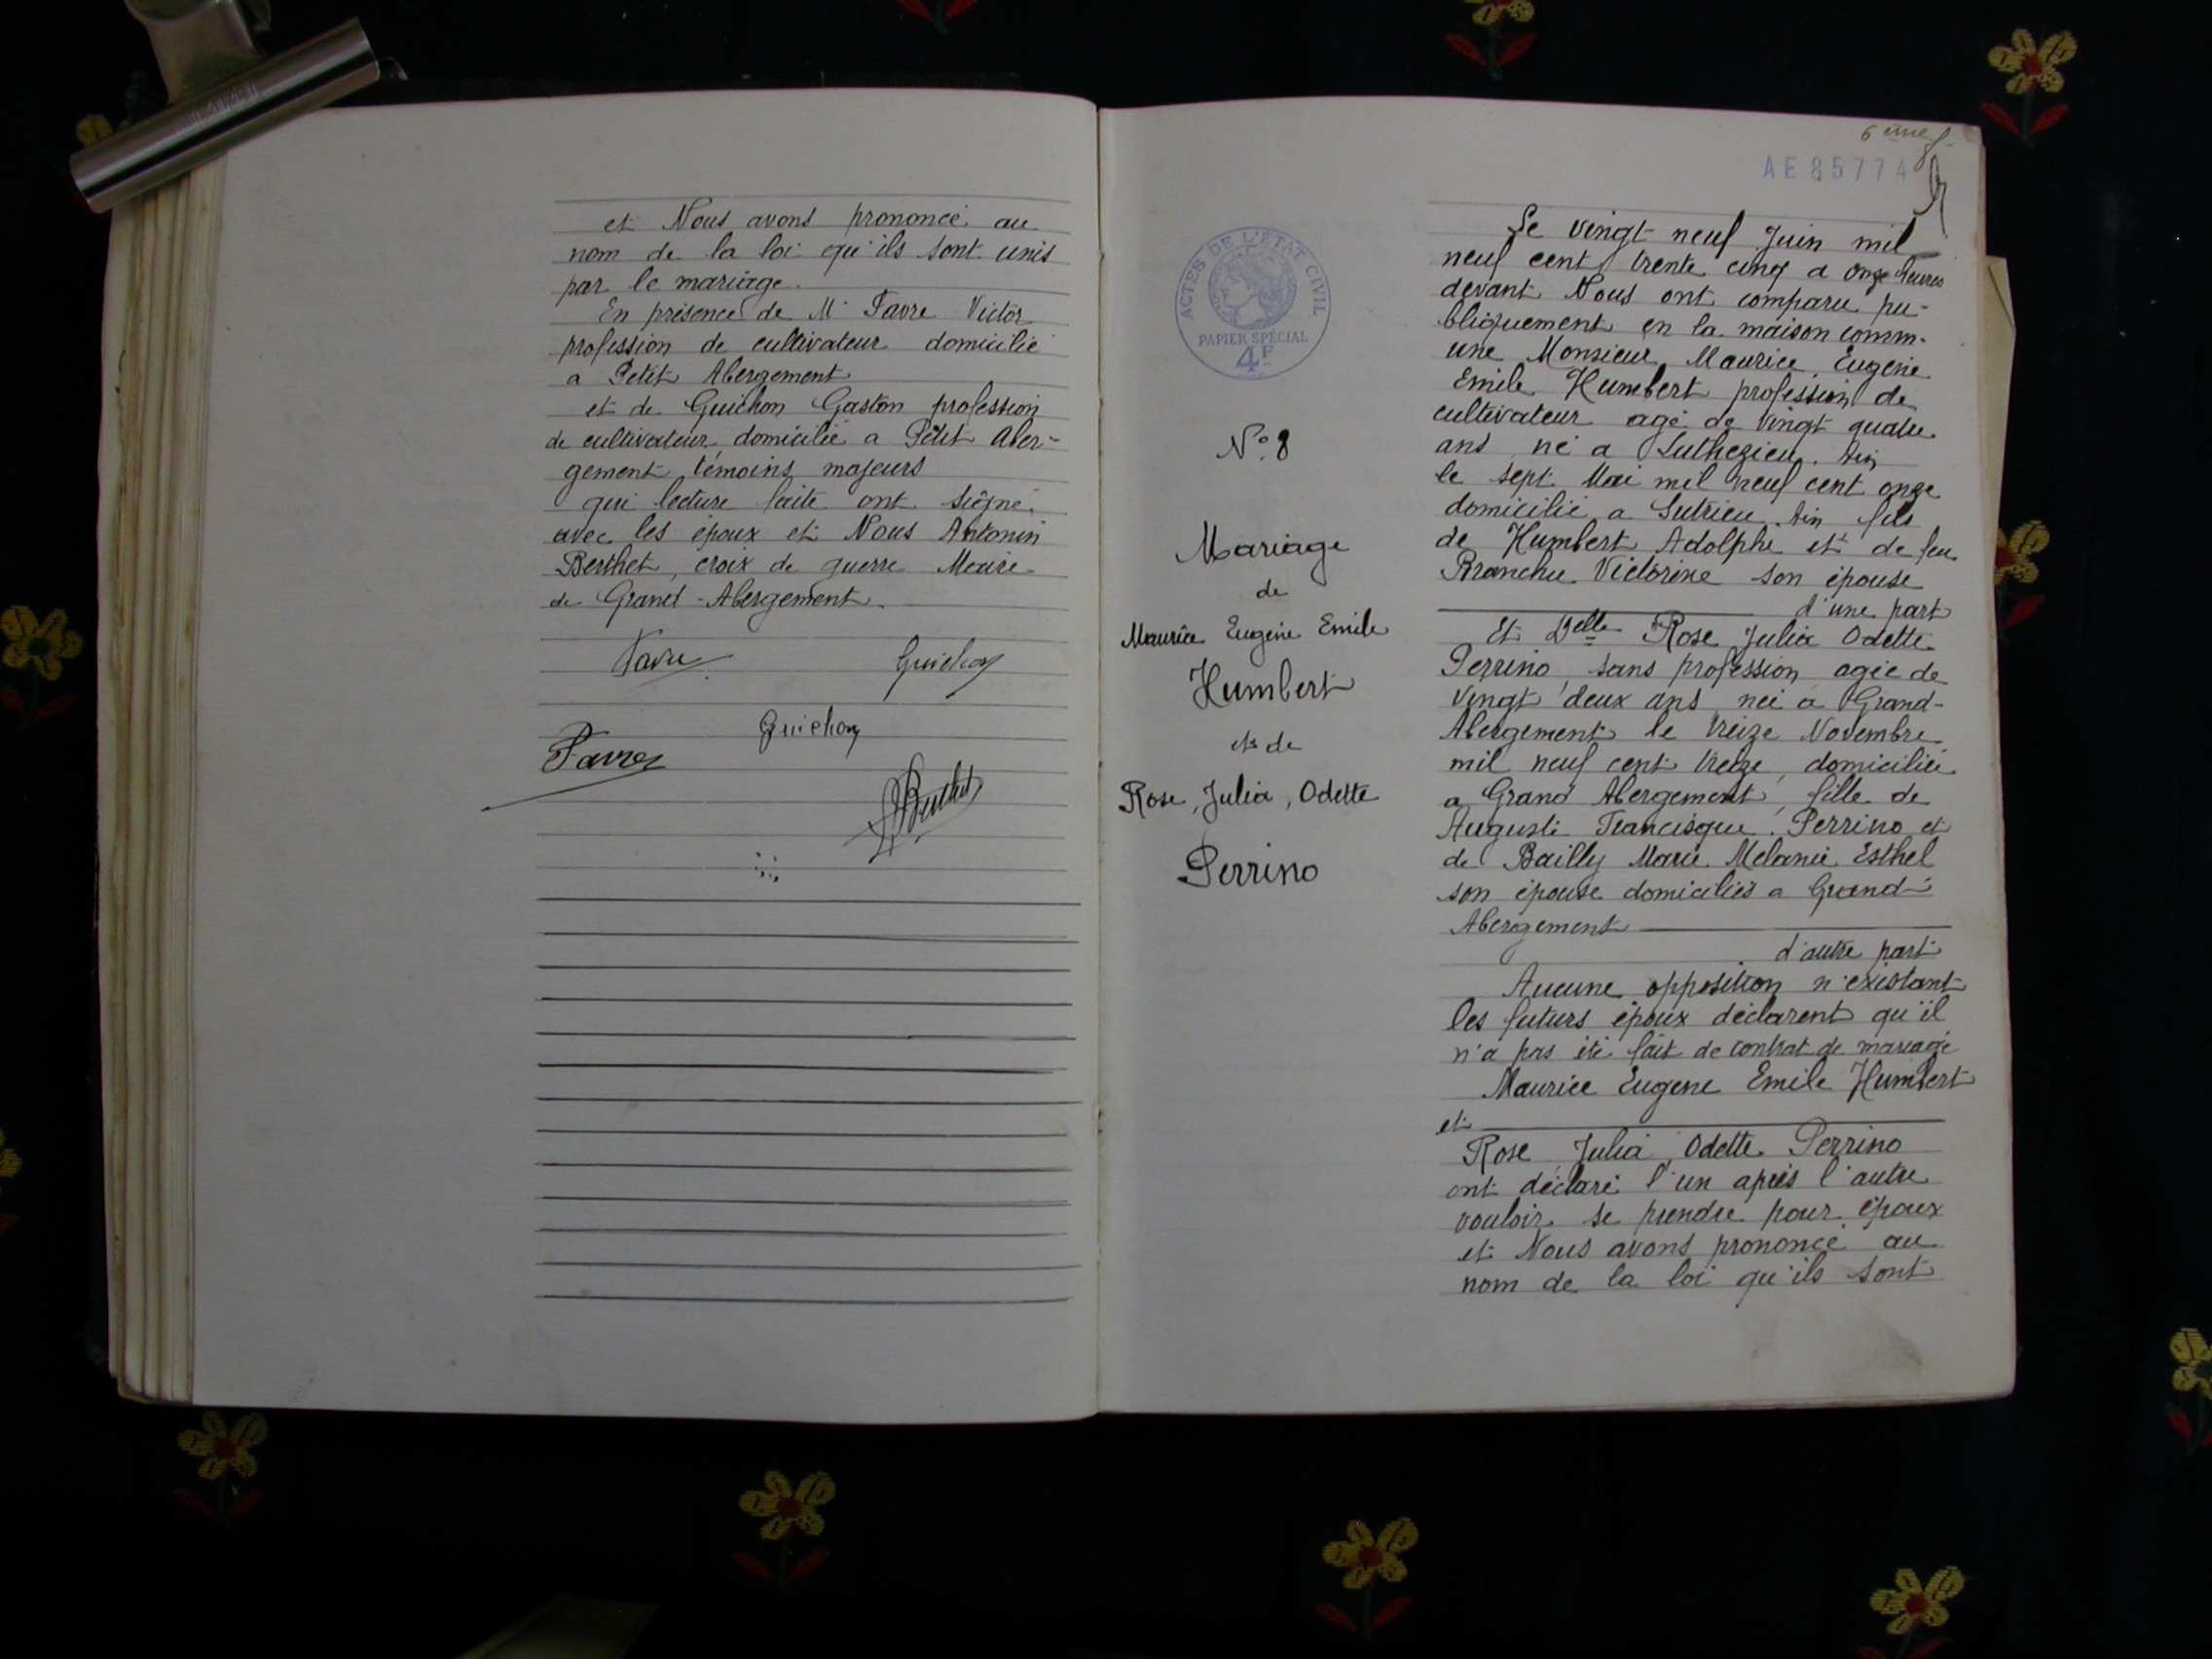 et Nous avons prononcé au
nom de la loi qu'ils sont unis
par le mariage.
En présence de Mr Favre Victor
profession de cultivateur domicilié
a Petit Abergement
et de Guichon Gaston profession
de cultivateur domicilié a Petit Aber-
gement, témoins majeurs
qui lecture faite ont signé
avec les époux et Nous Antonin
Berthet, croix de guerre Maire
de Grand-Abergement.
Favre Guichon
Guichon
Favre
Berthet
6ème f
AE 85774
ACTES DE L'ÉTAT CIVIL
PAPIER SPÉCIAL
4F
N° 8
Mariage
de
Maurice Eugène Emile
Humbert
et de
Rose, Julia, Odette
Perrino
Le vingt neuf Juin mil
neuf cent trente cinq a onze heures
devant Nous ont comparu pu-
bliquement en la maison comm-
une Monsieur Maurice Eugène
Emile Humbert profession de
cultivateur agé de vingt quatre
ans né a Luthezieu. Ain
le sept Mai mil neuf cent onze
domicilié a Sutrieu. Ain fils
de Humbert Adolphe et de feu
Branchu Victorine son épouse
d'une part
Et Delle Rose Julia Odette
Perrino, sans profession agée de
vingt deux ans née a Grand-
Abergement le treize Novembre
mil neuf cent treize, domiciliée
a Grand Abergement, fille de
Auguste Francisque Perrino et
de Bailly Marie Melanie Esthel
son épouse domiciliés a Grand-
Abergement
d'autre part
Aucune opposition n'existant
les futurs époux déclarent qu'il
n'a pas été fait de contrat de mariage
Maurice Eugene Emile Humbert
et
Rose Julia Odette Perrino
ont déclaré l'un après l'autre
vouloir se prendre pour époux
et Nous avons prononcé au
nom de la loi qu'ils sont